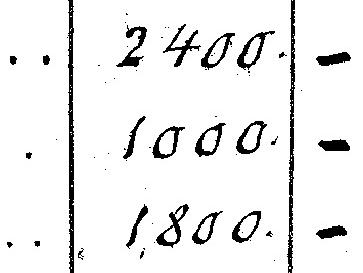 .. 2400. -
. 1000. -
.. 1800. -